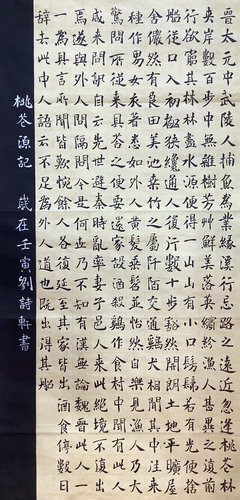 晉太元中武陵人捕魚為業緣溪行忘路之遠近忽逢桃花林
夾岸數百步中無雜樹芳草鮮美落英繽紛漁人甚異之復前
行欲窮其林林盡水源便得一山山有小口髣髴若有光便捨
船從口入初極狹纔通人復行數十步豁然開朗土地平曠屋
舍儼然有良田美池桑竹之屬阡陌交通雞犬相聞其中往來
種作男女衣著悉如外人黃髮垂髫並怡然自樂見漁人乃大
驚問所從來具答之便要還家設酒殺雞作食村中聞有此人
咸來問訊自云先世避秦時亂率妻子邑人來此絕境不復出
焉遂與外人間隔問今是何世乃不知有漢無論魏晉此人一
一為具言所聞皆歎惋餘人各復延至其家皆出酒食停數日
辭去此中人語云不足為外人道也既出得其船
桃花源記 歲在壬寅劉詩軒書